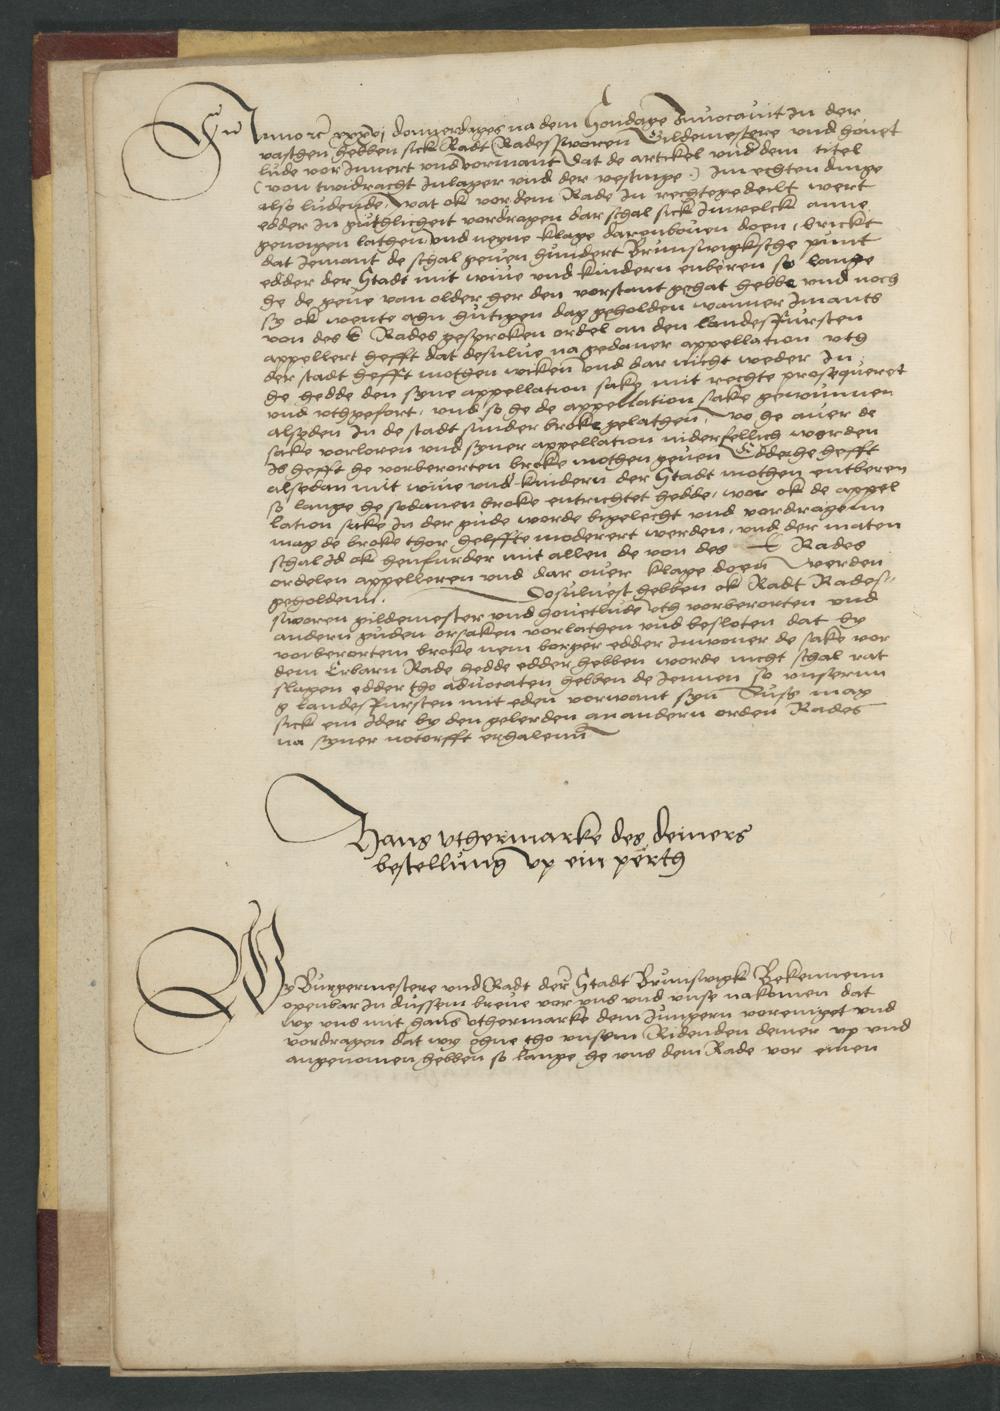 In Anno ꝛc xxxvj donnerdages na dem Sondage Invocauit in der
vasthen hebben sick Radt Radessworen Gildemestere vnd houet
lude vor Innert vnd vormant dat de artickel vnd dem titel
( von twidracht Inlager vnd der vestinge .) im echten dinge
also ludende, wat ok vor dem Rade in rechte gedeilt wert
edder in guthlicheit vordragen dar schal sick Imwelck anne
genogen lathen vnd neyne klage darenbouen doen, brickt
dat Jemant de schal geuen hundert Brunswigksche punt
edder der Stadt mit wiue vnd kindern enberen so lange
he de geue van older her den vorstant gehat hebbe vnd noch
sy ok wente ahn hutigen dag geholden wanner Imants
von des E Rades gesproken ordel an den landesfursten
appellert hefft dat desulue na gedaner appellation vth
der stadt hefft mothen wiken vnd dar nicht weder in
he hedde den syne appellation sake mit rechte prosequeret
vnd vthgefort, vnd so he de appellation sake gewunnen
alsden In de stadt sunder broke gelathen, wo he auer de
sake vorloren vnd syner appellation niderfellich worden
Js hefft he vorberorten broke mothen geuen Edder he hefft
alsedan mit wiue vnd kindern der Stadt mothen entberen
so lange he sodanen broke entrichtet hedde, wor ok de appel
lation sake in der gude worde bygelecht vnd vordragenn
mag de broke thor helffte moderert werden, vnd der maten
schal Jd ok henfurder mit allen de von des E Rades
ordelen appelleren vnd dar ouer klage doen werden
geholdenn. Dosuluest hebben ok Radt Rades-
sworen gildemester vnd houetlude vth vorberorten vnd
andern guden orsaken vorlathen vnd besloten dat by
vorberortem broke nem borger edder Inwoner de sake vor
dem Erbarn Rade hedde edder hebben worde nicht schal rat
slagen edder tho aduocaten hebben de Jennen so vnserm
g landesfursten mit eden vorwant syn Suss mag
sick ein Jder by den gelerden an andern orden Rades
na syner notorfft erhalenn
Hans vthermarke des deiners
bestellung vp ein perth
Wy Burgermestere vnd Radt der Stadt Brunswigk Bekennenn
openbar in dussem breue vor vns vnd vnse nakomen dat
wy vns mit Hans vthermarke dem Jungern voreniget vnd
vordragen dat wy ohne tho vnsem Ridenden deiner vp vnd
angenomen hebben so lange he vns dem Rade vor einen